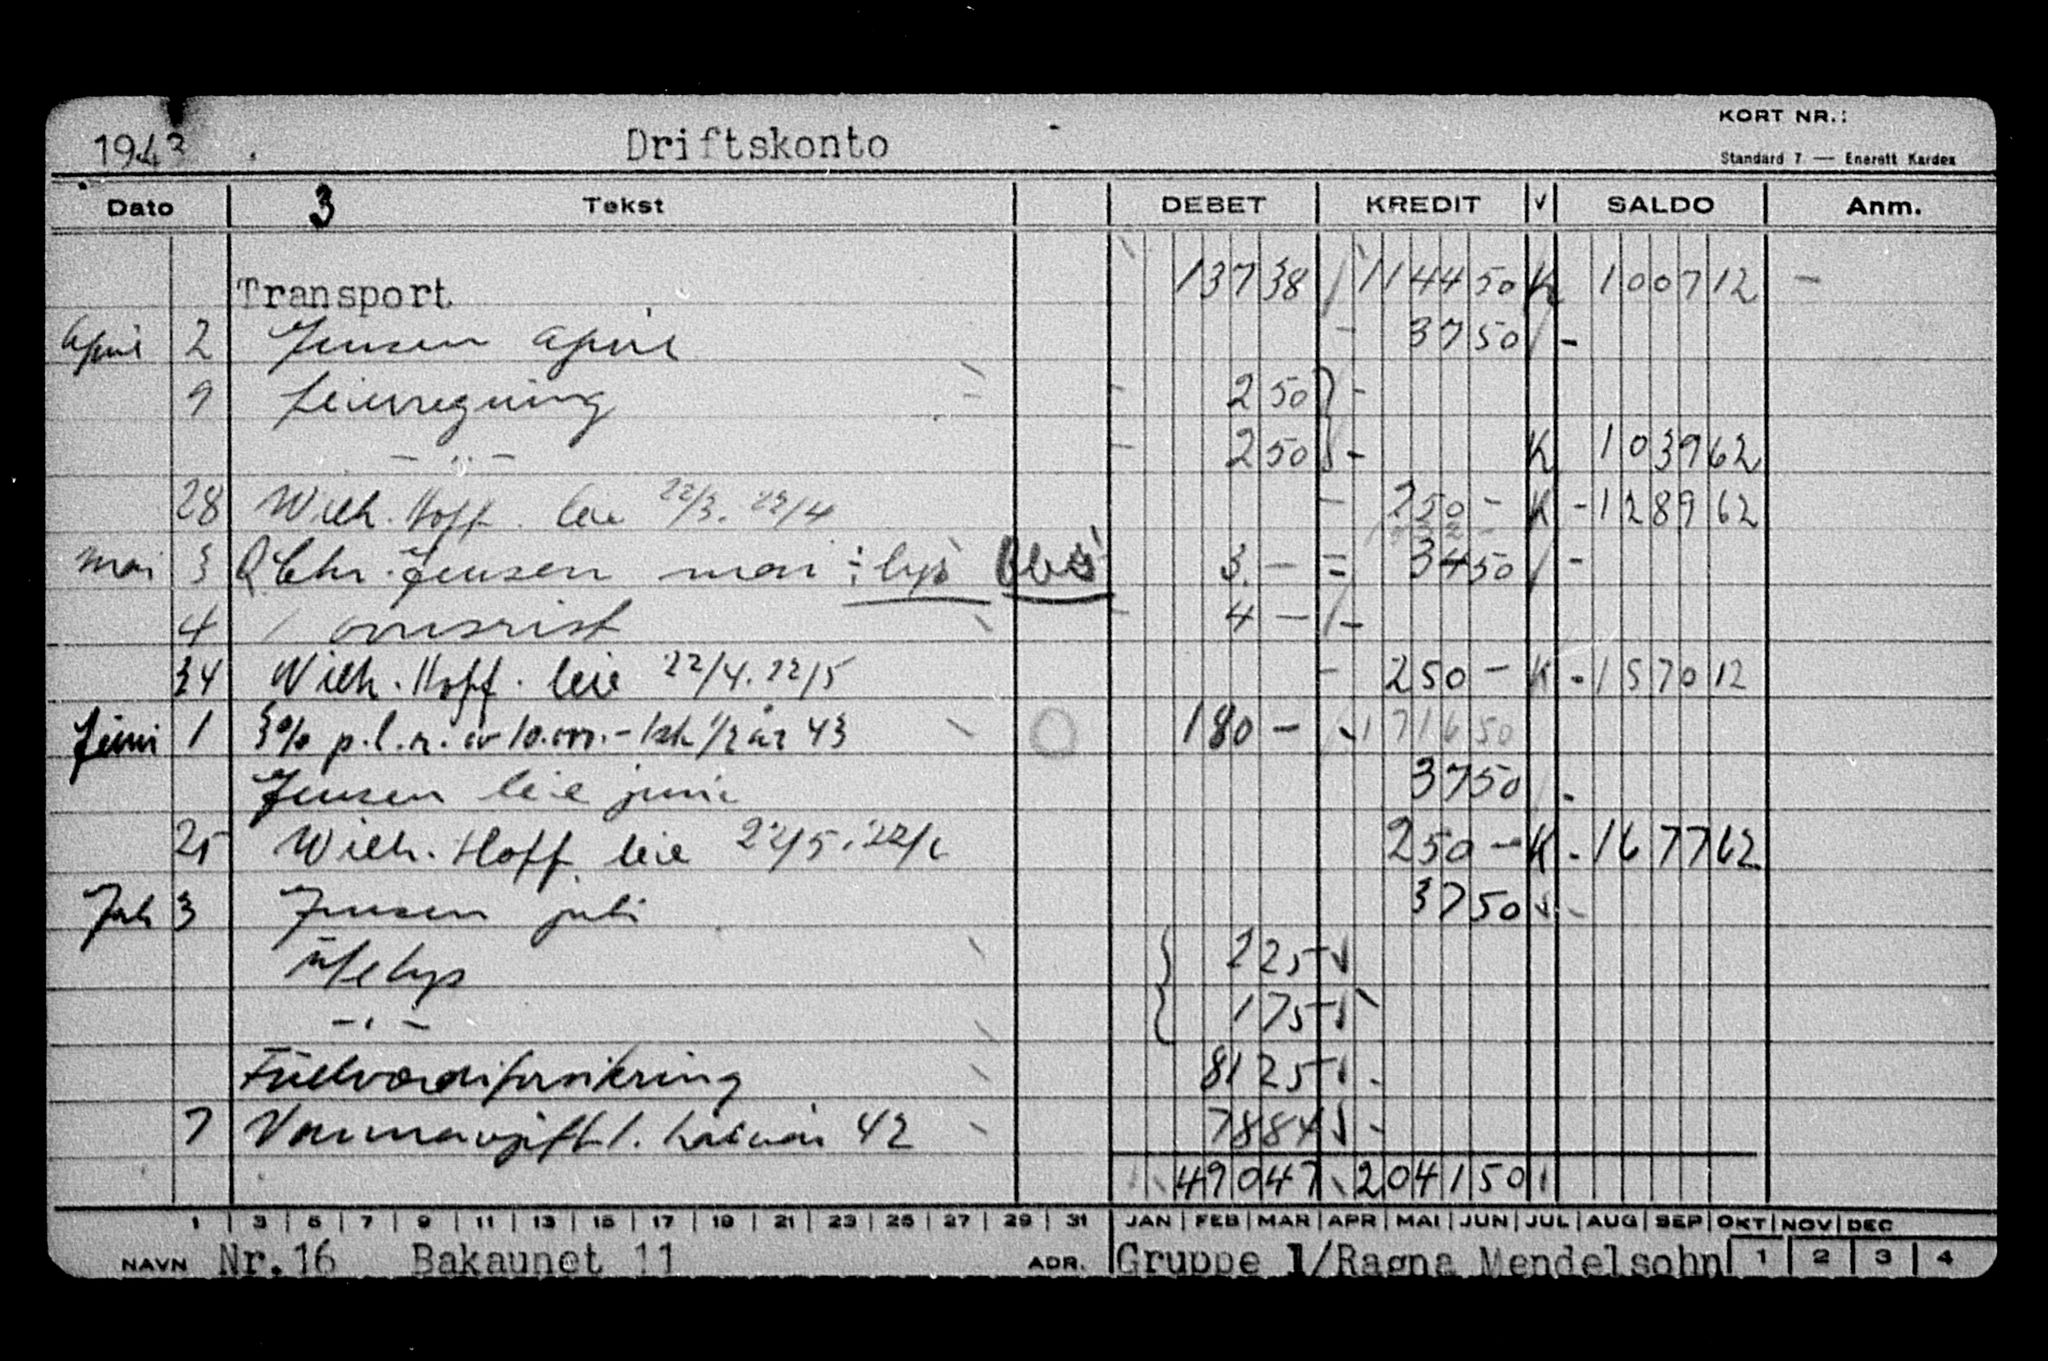 1943 Driftskonto KORT NR.:
Standard 7 — Enerett Kardex
Dato 3 Tekst DEBET KREDIT V SALDO Anm.
Transport 137 38 1144 50 K 1007 12
April 2 Jensen april 37 50
9 Leieregning 2 50
— " — 2 50 K 1039 62
28 Wilh. Hoff. leie 22/3. 22/4 250 - K 1289 62
Mai 3 Chr. Jensen mai ÷ lys Obs 3. - = 34 50
4 ovnsrist 4 -
Wilh. Hoff. leie 22/4. 22/5 250 - K 1570 12
Juni 1 p.l.n. av 10.000.- 1ste 1/2 år 43 180 - 1716 50
Jensen leie juni 37 50
25 Wilh. Hoff leie 22/5. 22/6 250 - K 1677 62
Juli 3 Jensen juli 37 50
Utelys 2 25
— " — 1 75
Fullverdiforsikring 81 25
7 Vannavgift 1. halvår 42 78 84
490 47 2041 50
1 3 5 7 9 11 13 15 17 19 21 23 25 27 29 31 JAN FEB MAR APR MAI JUN JUL AUG SEP OKT NOV DEC
NAVN Nr.16 Bakaunet 11 ADR. Gruppe 1/Ragna Mendelsohn 1 2 3 4